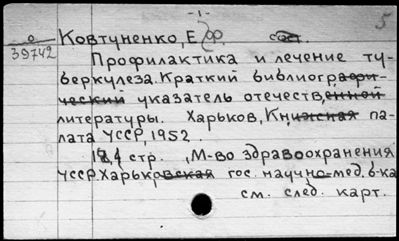 -1-
5
39742
Ковтуненко, Е.Ф. сост.
Профилактика и лечение ту-
беркулеза. Краткий библиографи-
ческий указатель отечественной
литературы. Харьков, Книжная па-
лата УССР, 1952.
184 стр. (М-во здравоохранения
УССР. Харьковская гос. научно-мед. б-ка
см. след. карт.